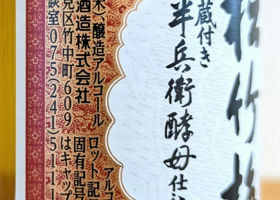 松竹梅
蔵付き
半兵衛酵母仕込
アルコ
ロット記
固有記号
はキャップ
米、醸造アルコール
酒造株式会社
見区竹中町609
談室075(241)511